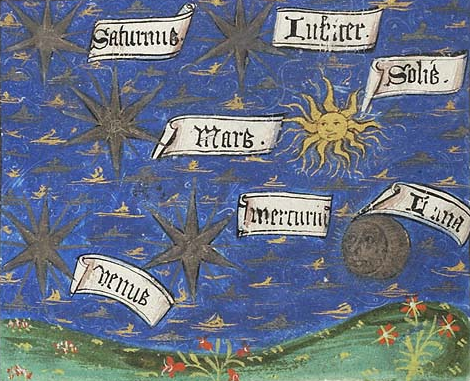 Saturnus
Iubiter.
Solis.
Mars.
mercurius
Luna
venus